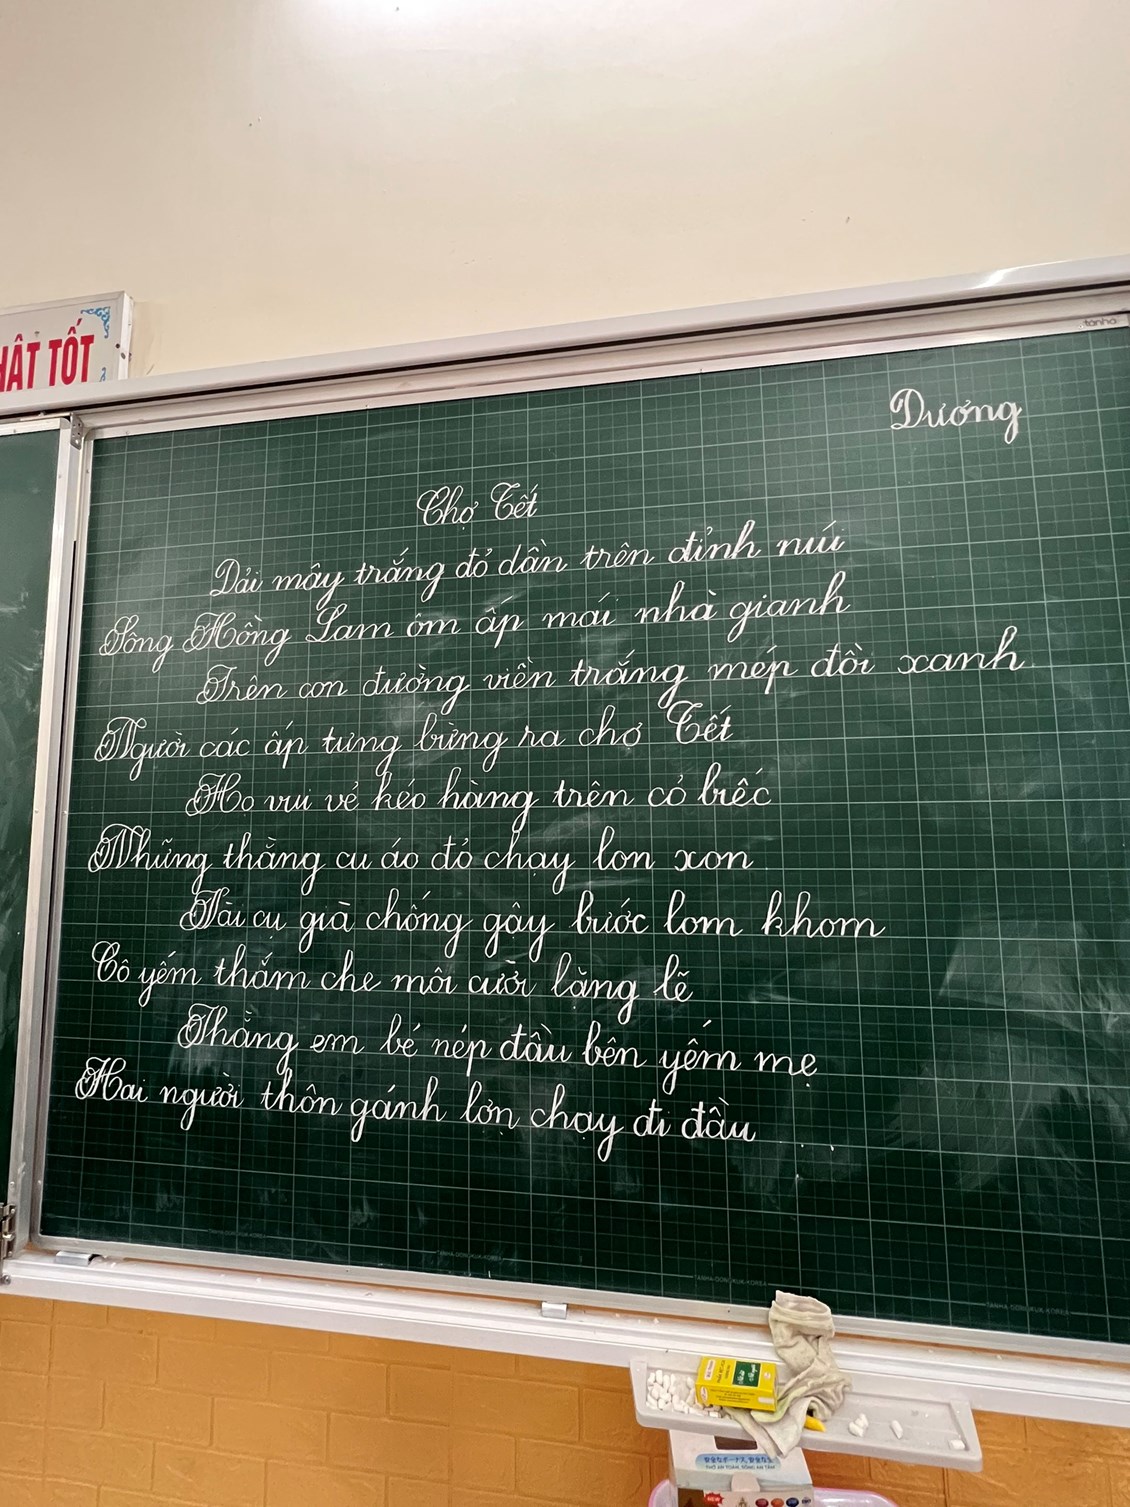 HẬT TỐT
tanha
Dương
Chợ Tết
Dải mây trắng đỏ dần trên đỉnh núi
Sông Hồng Lam ôm ấp mái nhà gianh
Trên con đường viền trắng mép đồi xanh
Người các ấp tưng bừng ra chợ Tết
Họ vui vẻ kéo hàng trên cỏ biếc
Những thằng cu áo đỏ chạy lon xon
Vài cụ già chống gậy bước lom khom
Cô yếm thắm che môi cười lặng lẽ
Thằng em bé nép đầu bên yếm mẹ
Hai người thôn gánh lợn chạy đi đầu